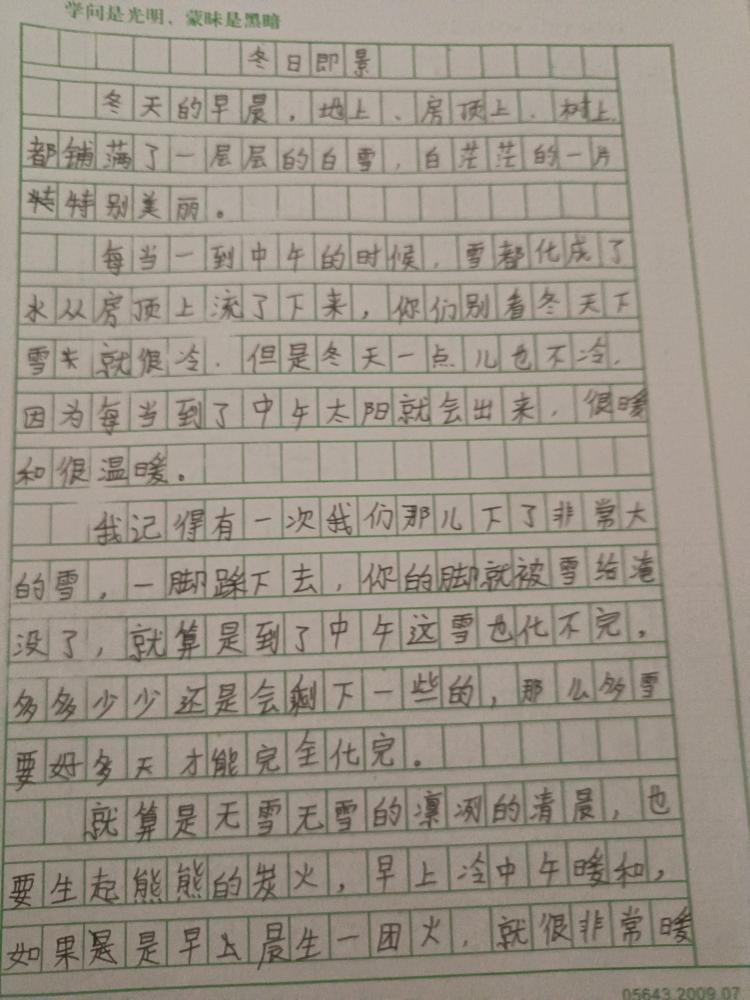 学问是光明，蒙昧是黑暗
冬日即景
冬天的早晨，地上、房顶上、树上，
都铺满了一层层的白雪，白茫茫的一片
特特别美丽。
每当一到中午的时候，雪都化成了
水从房顶上流了下来，你们别看冬天下
雪天就很冷，但是冬天一点儿也不冷，
因为每当到了中午太阳就会出来，很暖
和很温暖。
我记得有一次我们那儿下了非常大
的雪，一脚踩下去，你的脚就被雪给淹
没了，就算是到了中午这雪也化不完。
多多少少还是会剩下一些的，那么多雪
要好多天才能完全化完。
就算是无雪无雪的凛冽的清晨，也
要生起熊熊的炭火，早上冷中午暖和，
如果是是早上晨生一团火，就很非常暖
05643.2009.07